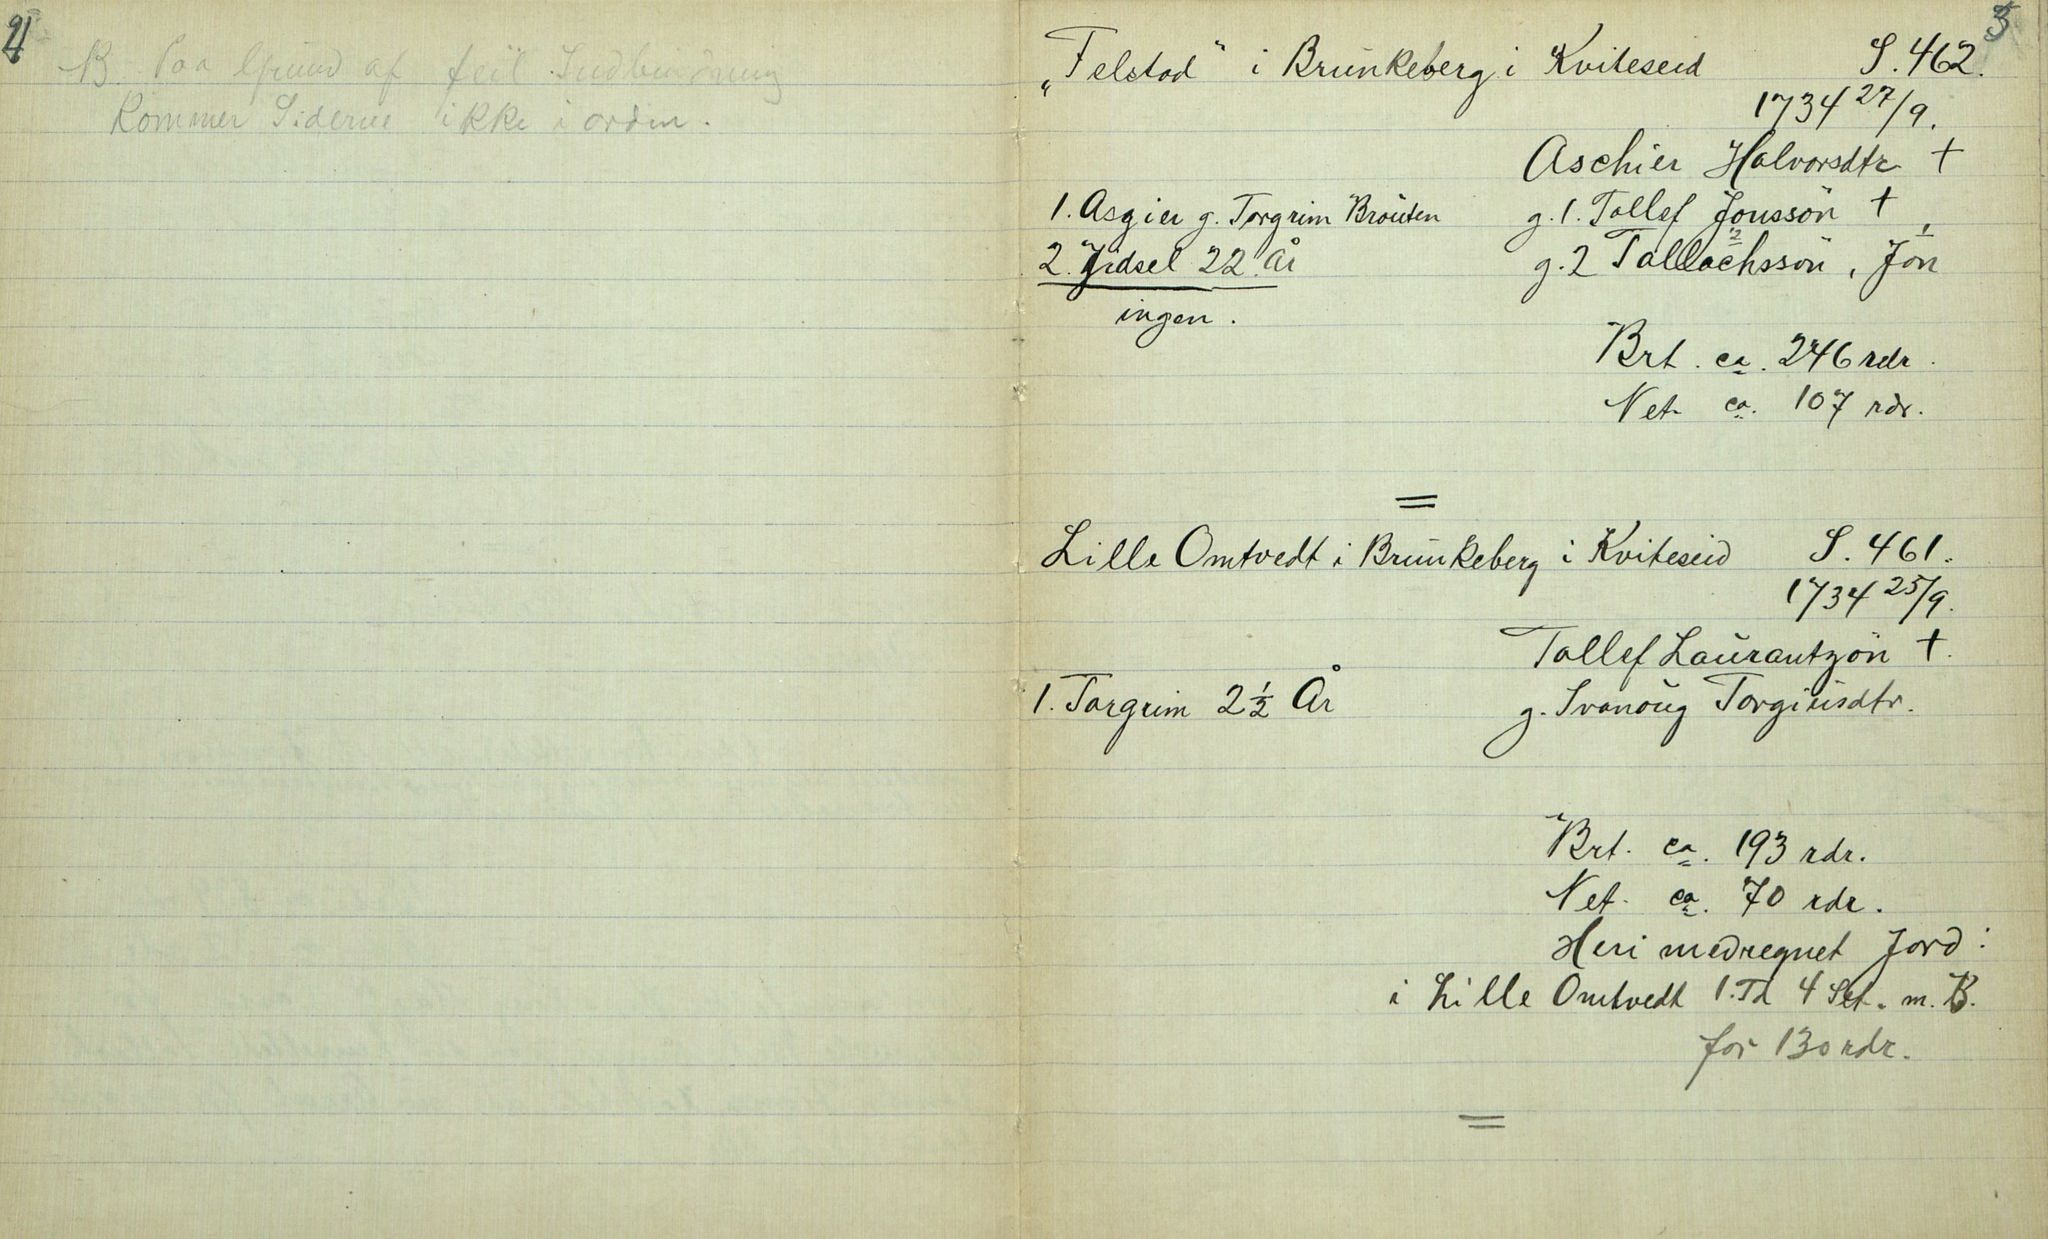 NB Paa Grund af feil Indbindning
kommer Siderne ikke i orden.
3
„Felstad" i Brunkeberg i Kviteseid S. 462.
1734 27/9.
Aschier Halvorsdtr †
1. Asgier g. Torgrim Brouten g. 1. Tollef Jonsson †
2. Jidsel 22 År g. 2 Tallachsson, Jon
ingen.
Brt. ca. 246 rdr.
Net ca. 107 rdr.
=
Lille Omtvedt i Brunkeberg i Kviteseid S. 461.
1734 25/9.
Tollef Laurantzøn †.
1. Torgrim 2½ År g. Svanoug Torgiusdtr.
Brt. ca. 193 rdr.
Net. ca. 70 rdr.
Heri medregnet Jord:
i Lille Omtvedt 1. Td 4 Set. m. B.
for 130 rdr.
=